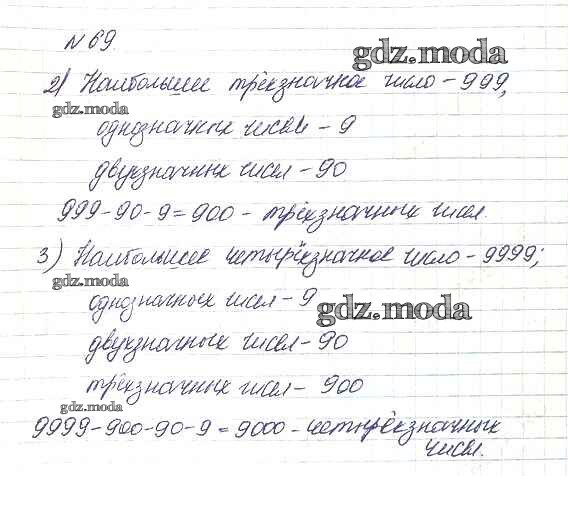 № 69.
gdz.moda
2) Наибольшее трёхзначное число - 999;
gdz.moda
однозначных чисел - 9
двухзначных чисел - 90
999 - 90 - 9 = 900 - трёхзначных чисел.
3) Наибольшее четырёхзначное число - 9999;
gdz.moda
однозначных чисел - 9
gdz.moda
двухзначных чисел - 90
трёхзначных чисел - 900
gdz.moda
9999 - 900 - 90 - 9 = 9000 - четырёхзначных
чисел.